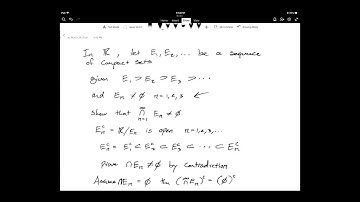 In ℝ, let E₁, E₂, ... be a sequence
of compact sets
given E₁ ⊃ E₂ ⊃ E₃ ⊃ ...
and Eₙ ≠ ∅ n = 1, 2, 3 ←
Show that ∞∩n=1 Eₙ ≠ ∅
Eₙᶜ = ℝ/Eₙ is open n = 1, 2, 3, ...
E₁ᶜ ⊂ E₂ᶜ ⊂ E₃ᶜ ⊂ ... ⊂ Eₙᶜ
Prove ∩Eₙ ≠ ∅ by contradiction
Assume ∩Eₙ = ∅ then (∩Eₙ)ᶜ = (∅)ᶜ